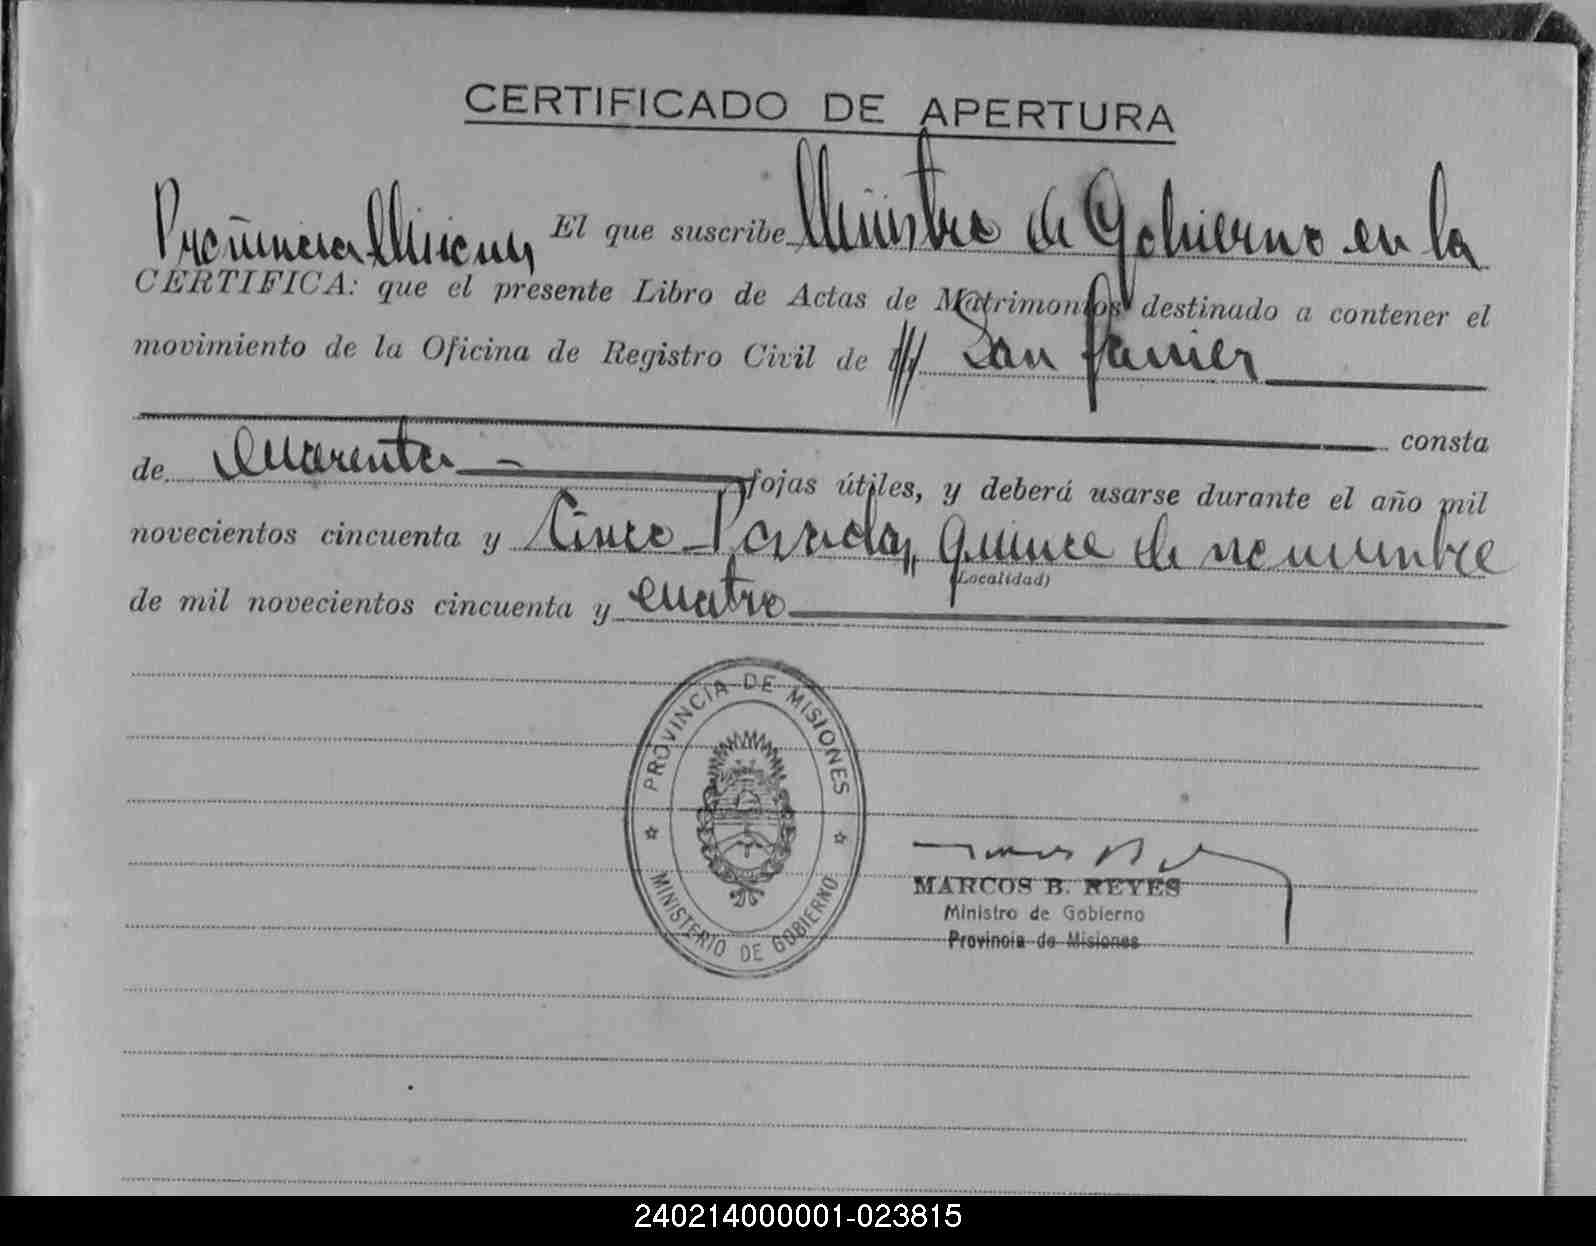 CERTIFICADO DE APERTURA
El que suscribe Ministro de Gobierno en la
Provincia Misiones
CERTIFICA: que el presente Libro de Actas de Matrimonios destinado a contener el
movimiento de la Oficina de Registro Civil de San Javier
consta
de cuarenta fojas útiles, y deberá usarse durante el año mil
novecientos cincuenta y Cinco Posadas, quince de noviembre
(Localidad)
de mil novecientos cincuenta y cuatro
PROVINCIA DE MISIONES
MINISTERIO DE GOBIERNO
MARCOS B. REYES
Ministro de Gobierno
Provincia de Misiones
240214000001-023815